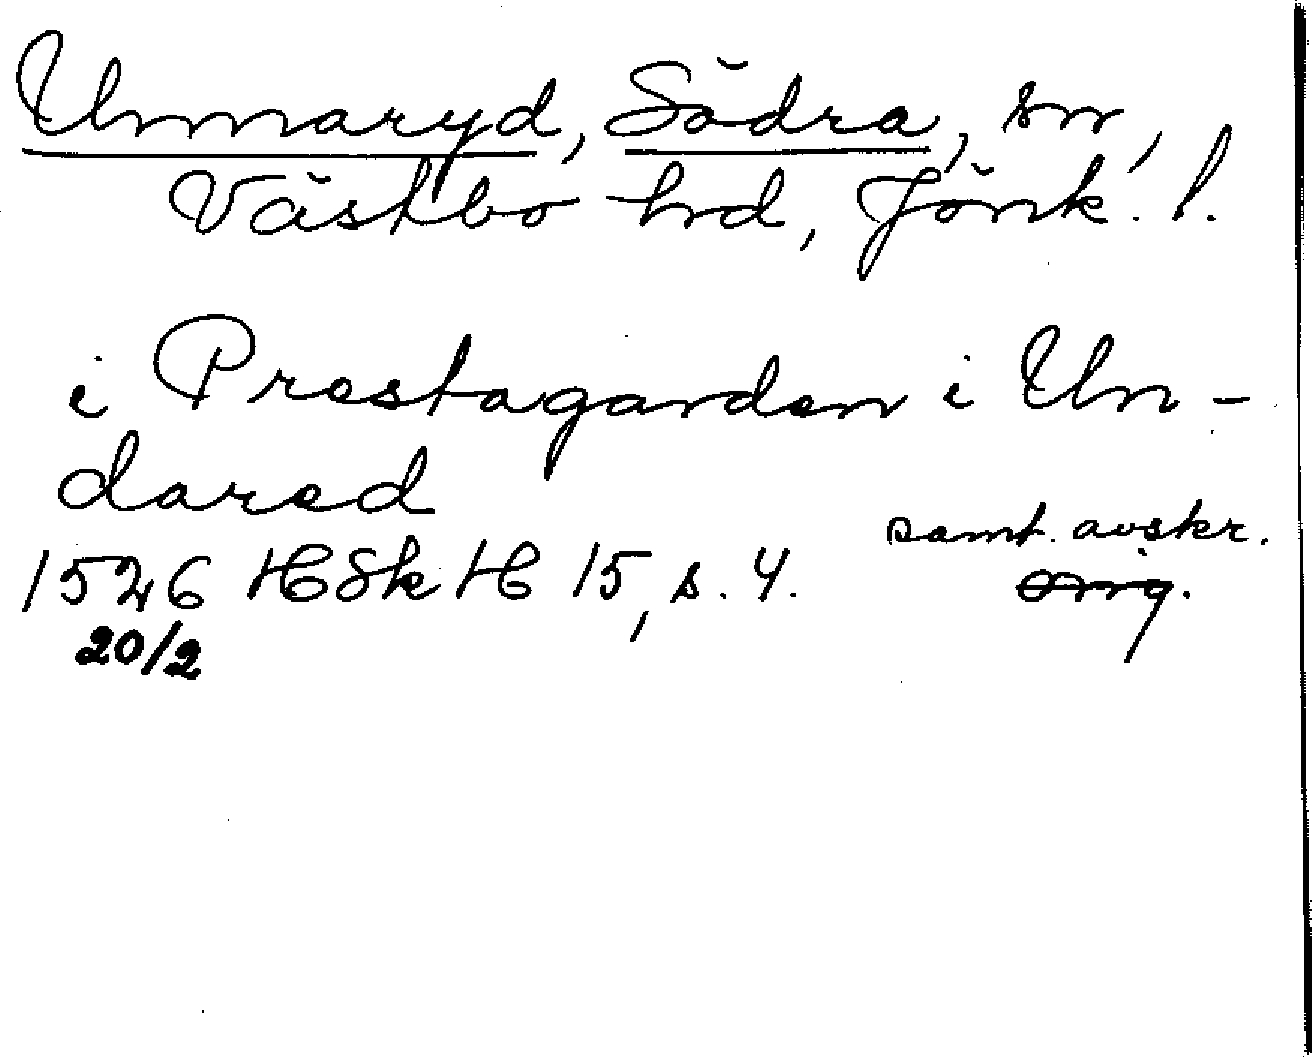 Unnaryd, Södra, sn,
Västbo hd, Jönk. l.
i Prestagarden i Un-
dared
samt. avskr.
1526 HSkH 15, s. 4. orig.
20/2